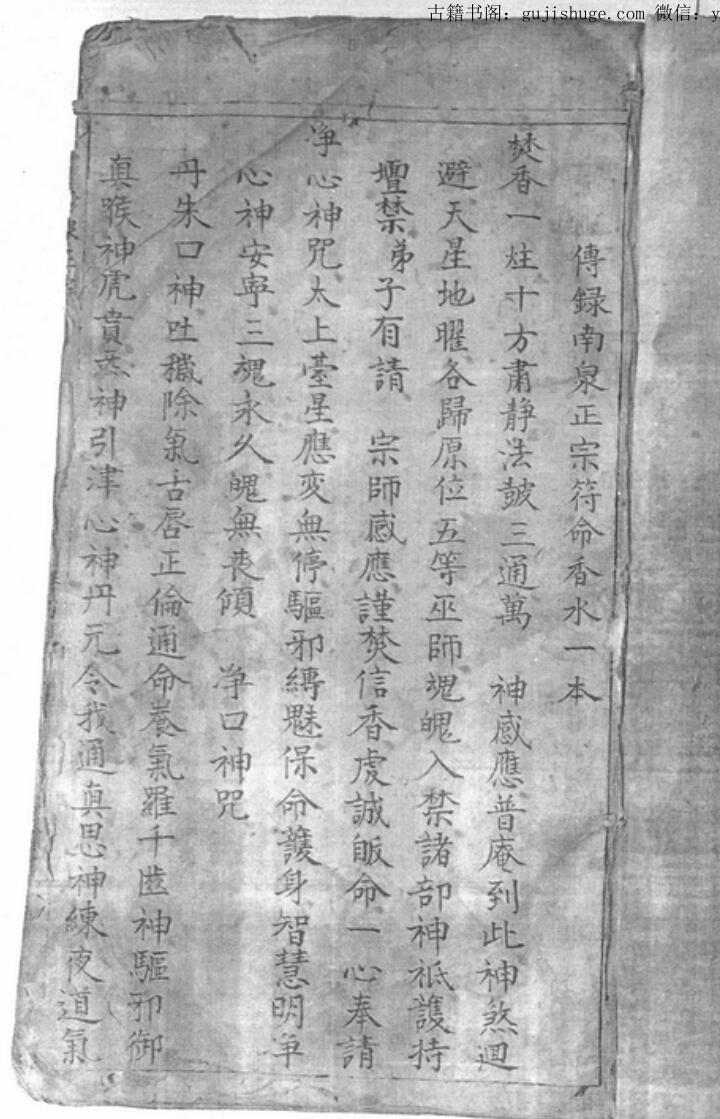 古籍书阁：gujishuge.com 微信：y
傳録南泉正宗符命香水一本
焚香一炷十方肅静法皷三通萬　神感應普庵到此神煞迴
避天星地曜各歸原位五等巫師魂魄入禁諸部神祇護持
壇禁弟子有請　宗師感應謹焚信香虔誠皈命一心奉請
净心神咒太上臺星應変無停驅邪縛魅保命護身智慧明净
心神安寕三魂永久魄無丧傾　净口神咒
丹朱口神吐穢除氣舌唇正倫通命養氣羅千齒神驅邪御
真喉神虎賁炁神引津心神丹元令我通真思神練夜道氣